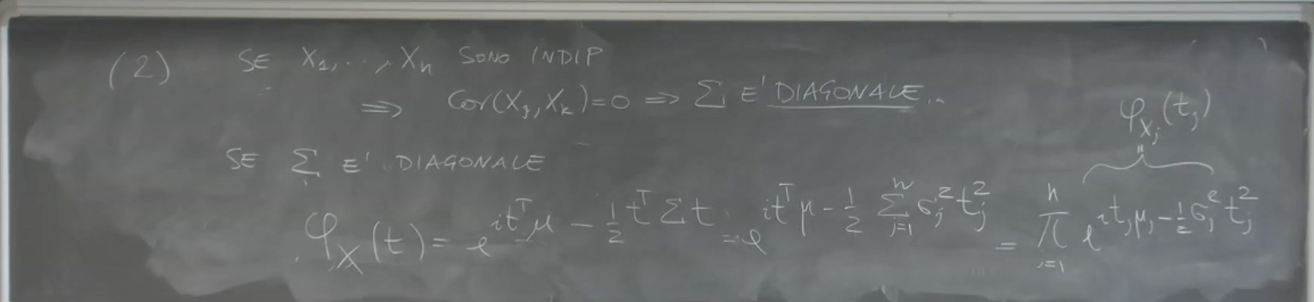 (2) SE X₁,..., Xₙ SONO INDIP
⟹ Cov(Xⱼ, Xₖ)=0 ⟹ Σ E' DIAGONALE..
SE Σ E' DIAGONALE
φ_{Xⱼ}(tⱼ)
φ_X(t) = e^{it^T μ - 1/2 t^T Σ t} = e^{it^T μ - 1/2 Σ_{j=1}^n σⱼ² tⱼ²} = ∏_{j=1}^n e^{itⱼμⱼ - 1/2 σⱼ² tⱼ²}